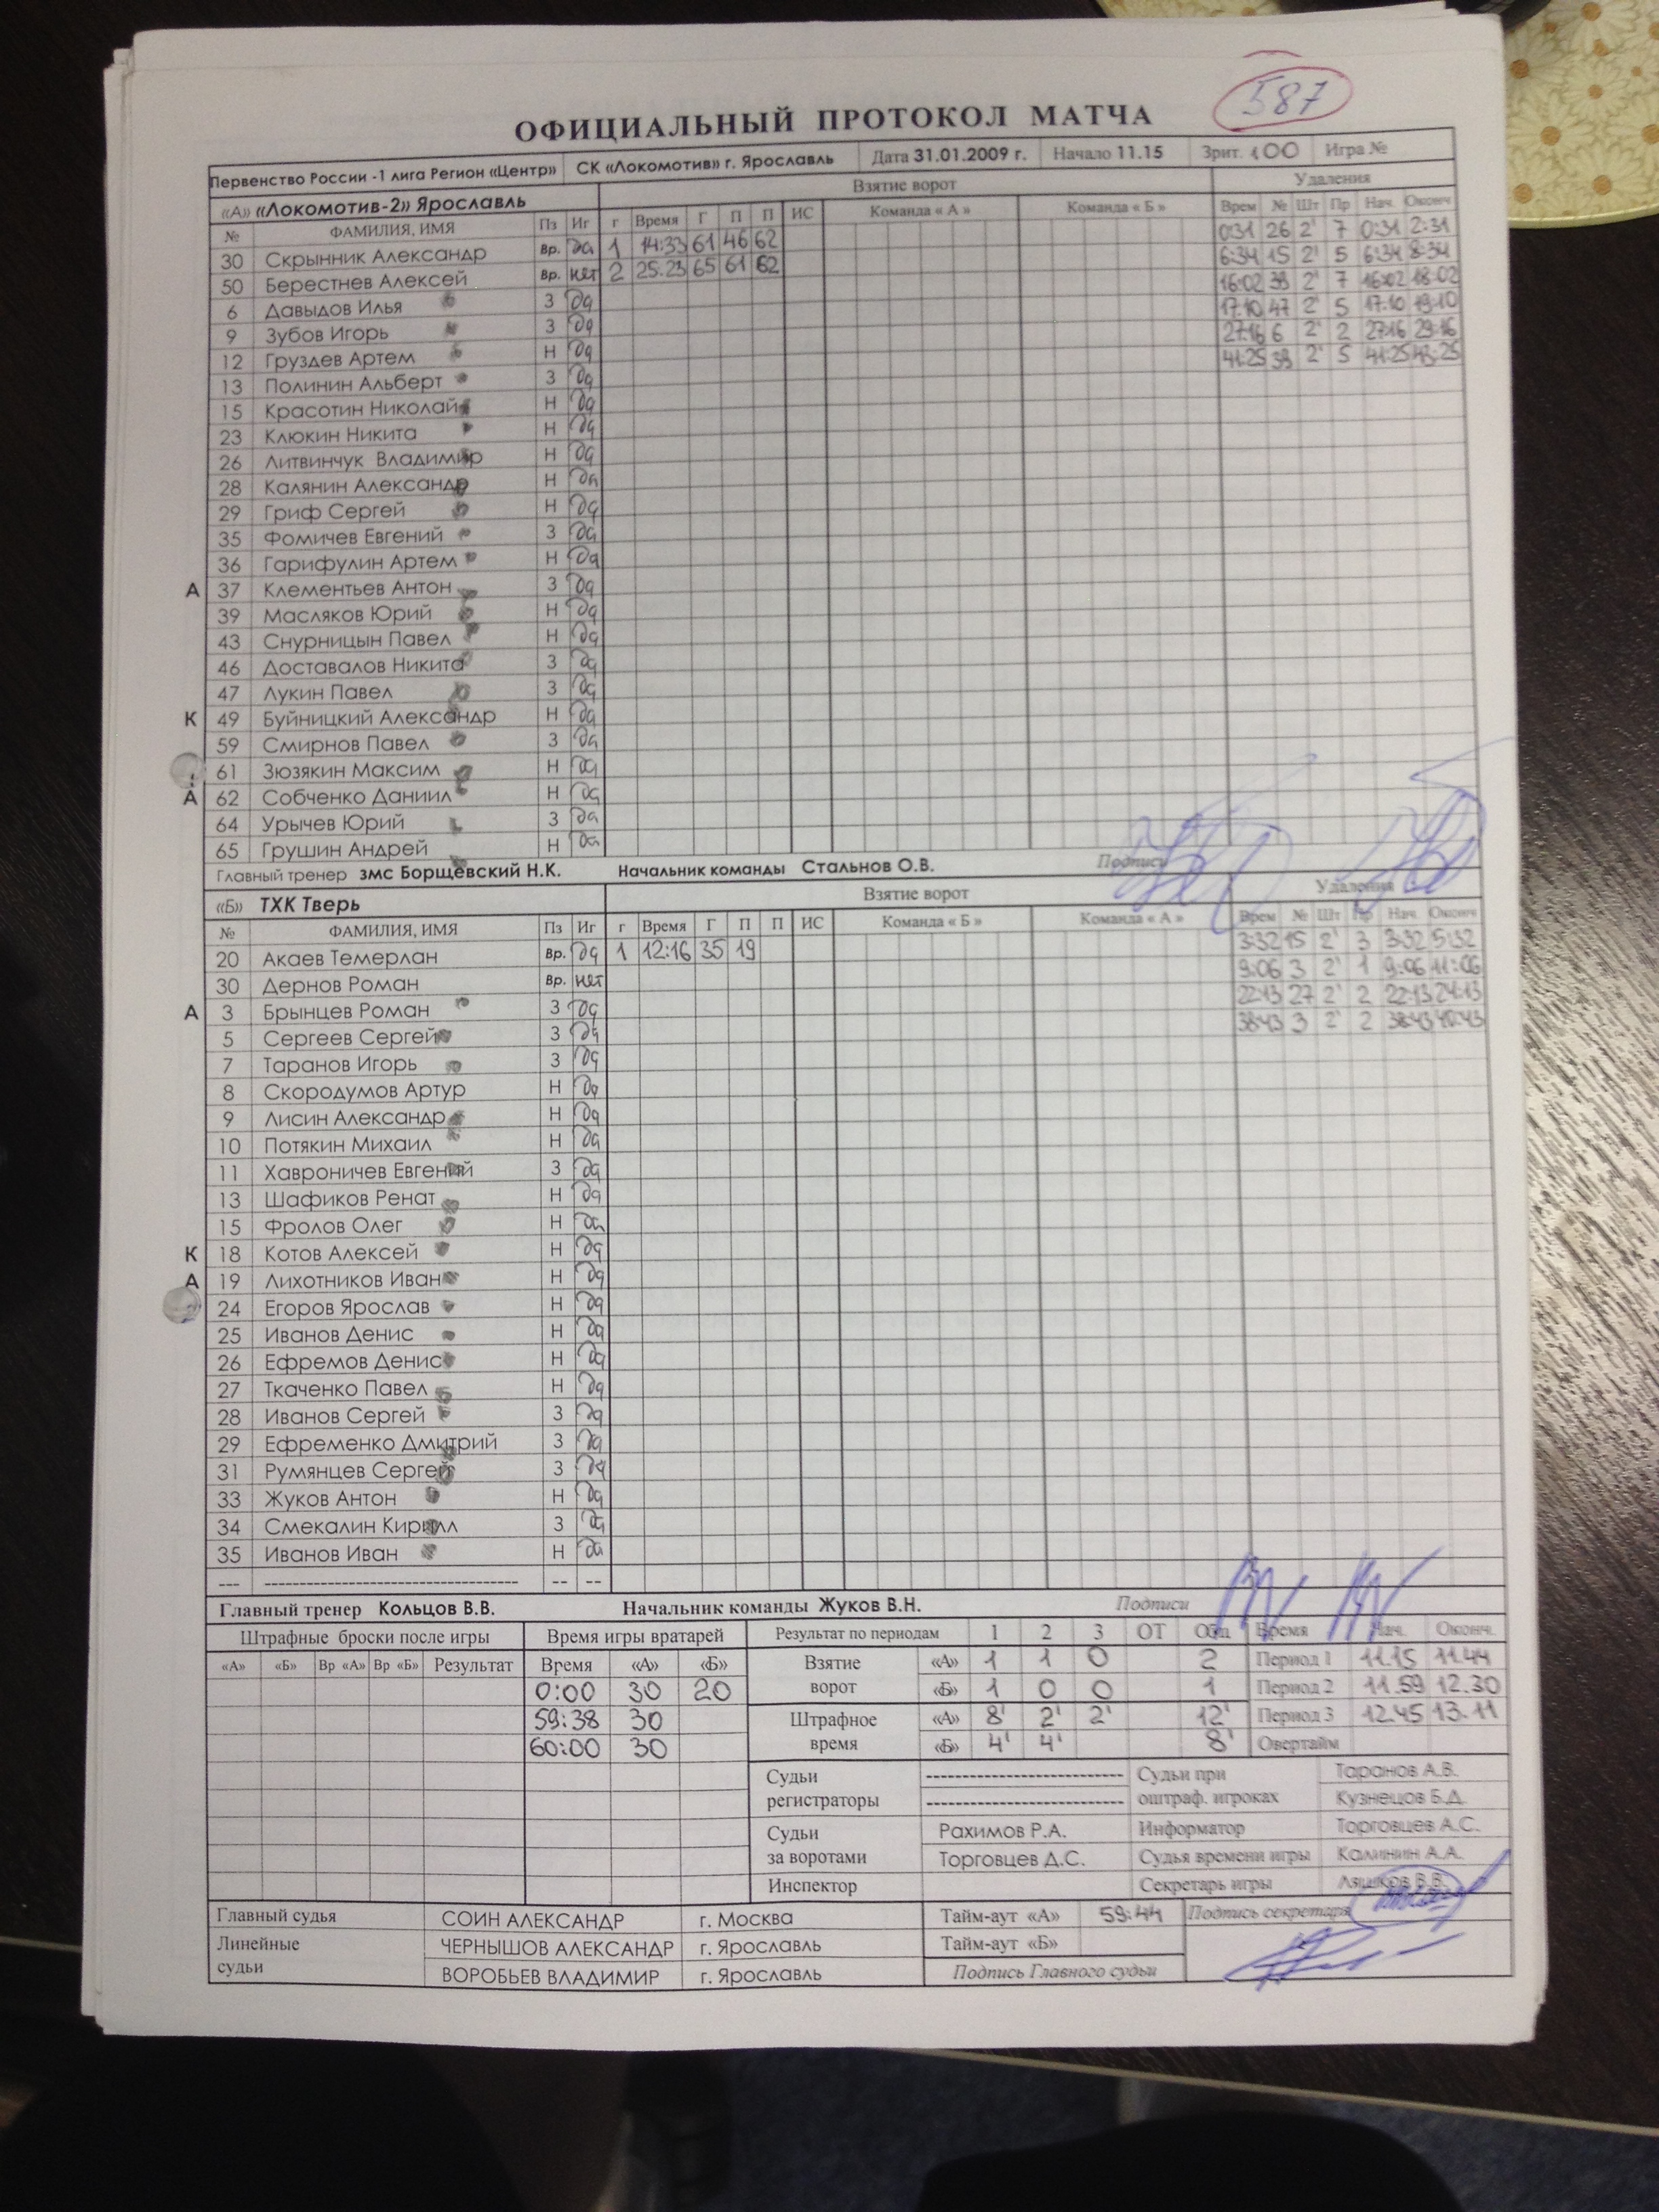 587
ОФИЦИАЛЬНЫЙ ПРОТОКОЛ МАТЧА
Первенство России -1 лига Регион «Центр» СК «Локомотив» г. Ярославль Дата 31.01.2009 г. Начало 11.15 Зрит. 100 Игра №
«А» «Локомотив-2» Ярославль Взятие ворот Удаления
№ ФАМИЛИЯ, ИМЯ Пз Иг г Время Г П П ИС Команда « А » Команда « Б » Врем № Шт Пр Нач. Оконч
30 Скрынник Александр Вр. да 1 14:33 61 46 62 0:31 26 2' 7 0:31 2:31
50 Берестнев Алексей Вр. нет 2 25:23 65 61 62 6:34 15 2' 5 6:34 8:34
6 Давыдов Илья З да 16:02 39 2' 7 16:02 18:02
9 Зубов Игорь З да 17:10 47 2' 5 17:10 19:10
12 Груздев Артем Н да 27:16 6 2' 2 27:16 29:16
13 Полинин Альберт З да 41:25 39 2' 5 41:25 43:25
15 Красотин Николай Н да
23 Клюкин Никита Н да
26 Литвинчук Владимир Н да
28 Калянин Александр Н да
29 Гриф Сергей Н да
35 Фомичев Евгений З да
36 Гарифулин Артем Н да
А 37 Клементьев Антон З да
39 Масляков Юрий Н да
43 Снурницын Павел Н да
46 Доставалов Никита З да
47 Лукин Павел З да
К 49 Буйницкий Александр Н да
59 Смирнов Павел З да
61 Зюзякин Максим Н да
А 62 Собченко Даниил Н да
64 Урычев Юрий З да
65 Грушин Андрей Н да
Главный тренер змс Борщевский Н.К. Начальник команды Стальнов О.В. Подписи
«Б» ТХК Тверь Взятие ворот Удаления
№ ФАМИЛИЯ, ИМЯ Пз Иг г Время Г П П ИС Команда « Б » Команда « А » Врем № Шт Пр Нач. Оконч
20 Акаев Темерлан Вр. да 1 12:16 35 19 3:32 15 2' 3 3:32 5:32
30 Дернов Роман Вр. нет 9:06 3 2' 1 9:06 11:06
А 3 Брынцев Роман З да 22:13 27 2' 2 22:13 24:13
5 Сергеев Сергей З да 38:43 3 2' 2 38:43 40:43
7 Таранов Игорь З да
8 Скородумов Артур Н да
9 Лисин Александр Н да
10 Потякин Михаил Н да
11 Хавроничев Евгений З да
13 Шафиков Ренат Н да
15 Фролов Олег Н да
К 18 Котов Алексей Н да
А 19 Лихотников Иван Н да
24 Егоров Ярослав Н да
25 Иванов Денис Н да
26 Ефремов Денис Н да
27 Ткаченко Павел Н да
28 Иванов Сергей З да
29 Ефременко Дмитрий З да
31 Румянцев Сергей З да
33 Жуков Антон Н да
34 Смекалин Кирилл З да
35 Иванов Иван Н да
--- ------------------------------------ -- --
Главный тренер Кольцов В.В. Начальник команды Жуков В.Н. Подписи
Штрафные броски после игры Время игры вратарей Результат по периодам 1 2 3 ОТ Общ Время Нач. Оконч.
«А» «Б» Вр «А» Вр «Б» Результат Время «А» «Б» Взятие ворот «А» 1 1 0 2 Период 1 11.15 11.44
0:00 30 20 «Б» 1 0 0 1 Период 2 11.59 12.30
59:38 30 Штрафное время «А» 8' 2' 2' 12' Период 3 12.45 13.11
60:00 30 «Б» 4' 4' 8' Овертайм
Судьи регистраторы ---------------------------- Судьи при оштраф. игроках Таранов А.В.
---------------------------- Кузнецов Б.Д.
Судьи за воротами Рахимов Р.А. Информатор Торговцев А.С.
Торговцев Д.С. Судья времени игры Калинин А.А.
Инспектор Секретарь игры Ляшков В.В.
Главный судья СОИН АЛЕКСАНДР г. Москва Тайм-аут «А» 59:44 Подпись секретаря
Линейные судьи ЧЕРНЫШОВ АЛЕКСАНДР г. Ярославль Тайм-аут «Б»
ВОРОБЬЕВ ВЛАДИМИР г. Ярославль Подпись Главного судьи